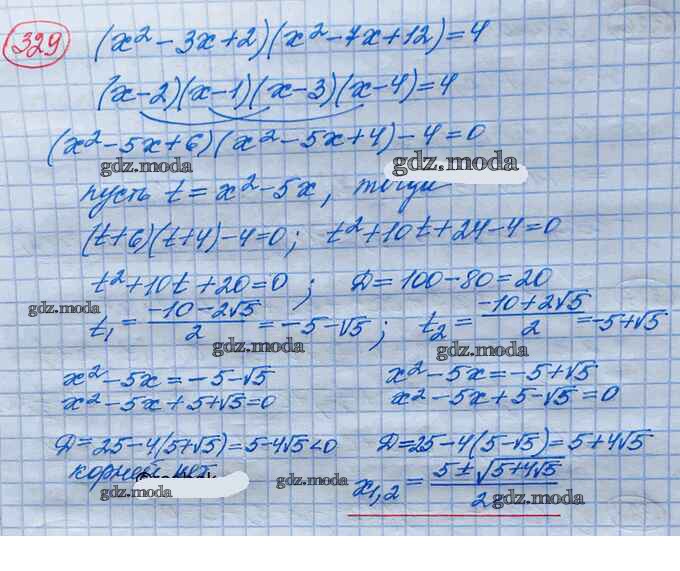 329 (x² - 3x + 2)(x² - 7x + 12) = 4
(x - 2)(x - 1)(x - 3)(x - 4) = 4
(x² - 5x + 6)(x² - 5x + 4) - 4 = 0
gdz.moda gdz.moda
пусть t = x² - 5x, тогда
(t + 6)(t + 4) - 4 = 0; t² + 10t + 24 - 4 = 0
t² + 10t + 20 = 0; D = 100 - 80 = 20
gdz.moda
t₁ = (-10 - 2√5)/2 = -5 - √5; t₂ = (-10 + 2√5)/2 = -5 + √5
gdz.moda gdz.moda
x² - 5x = -5 - √5 x² - 5x = -5 + √5
x² - 5x + 5 + √5 = 0 x² - 5x + 5 - √5 = 0
D = 25 - 4(5 + √5) = 5 - 4√5 < 0 D = 25 - 4(5 - √5) = 5 + 4√5
корней нет
x₁,₂ = (5 ± √(5 + 4√5))/2
gdz.moda gdz.moda gdz.moda